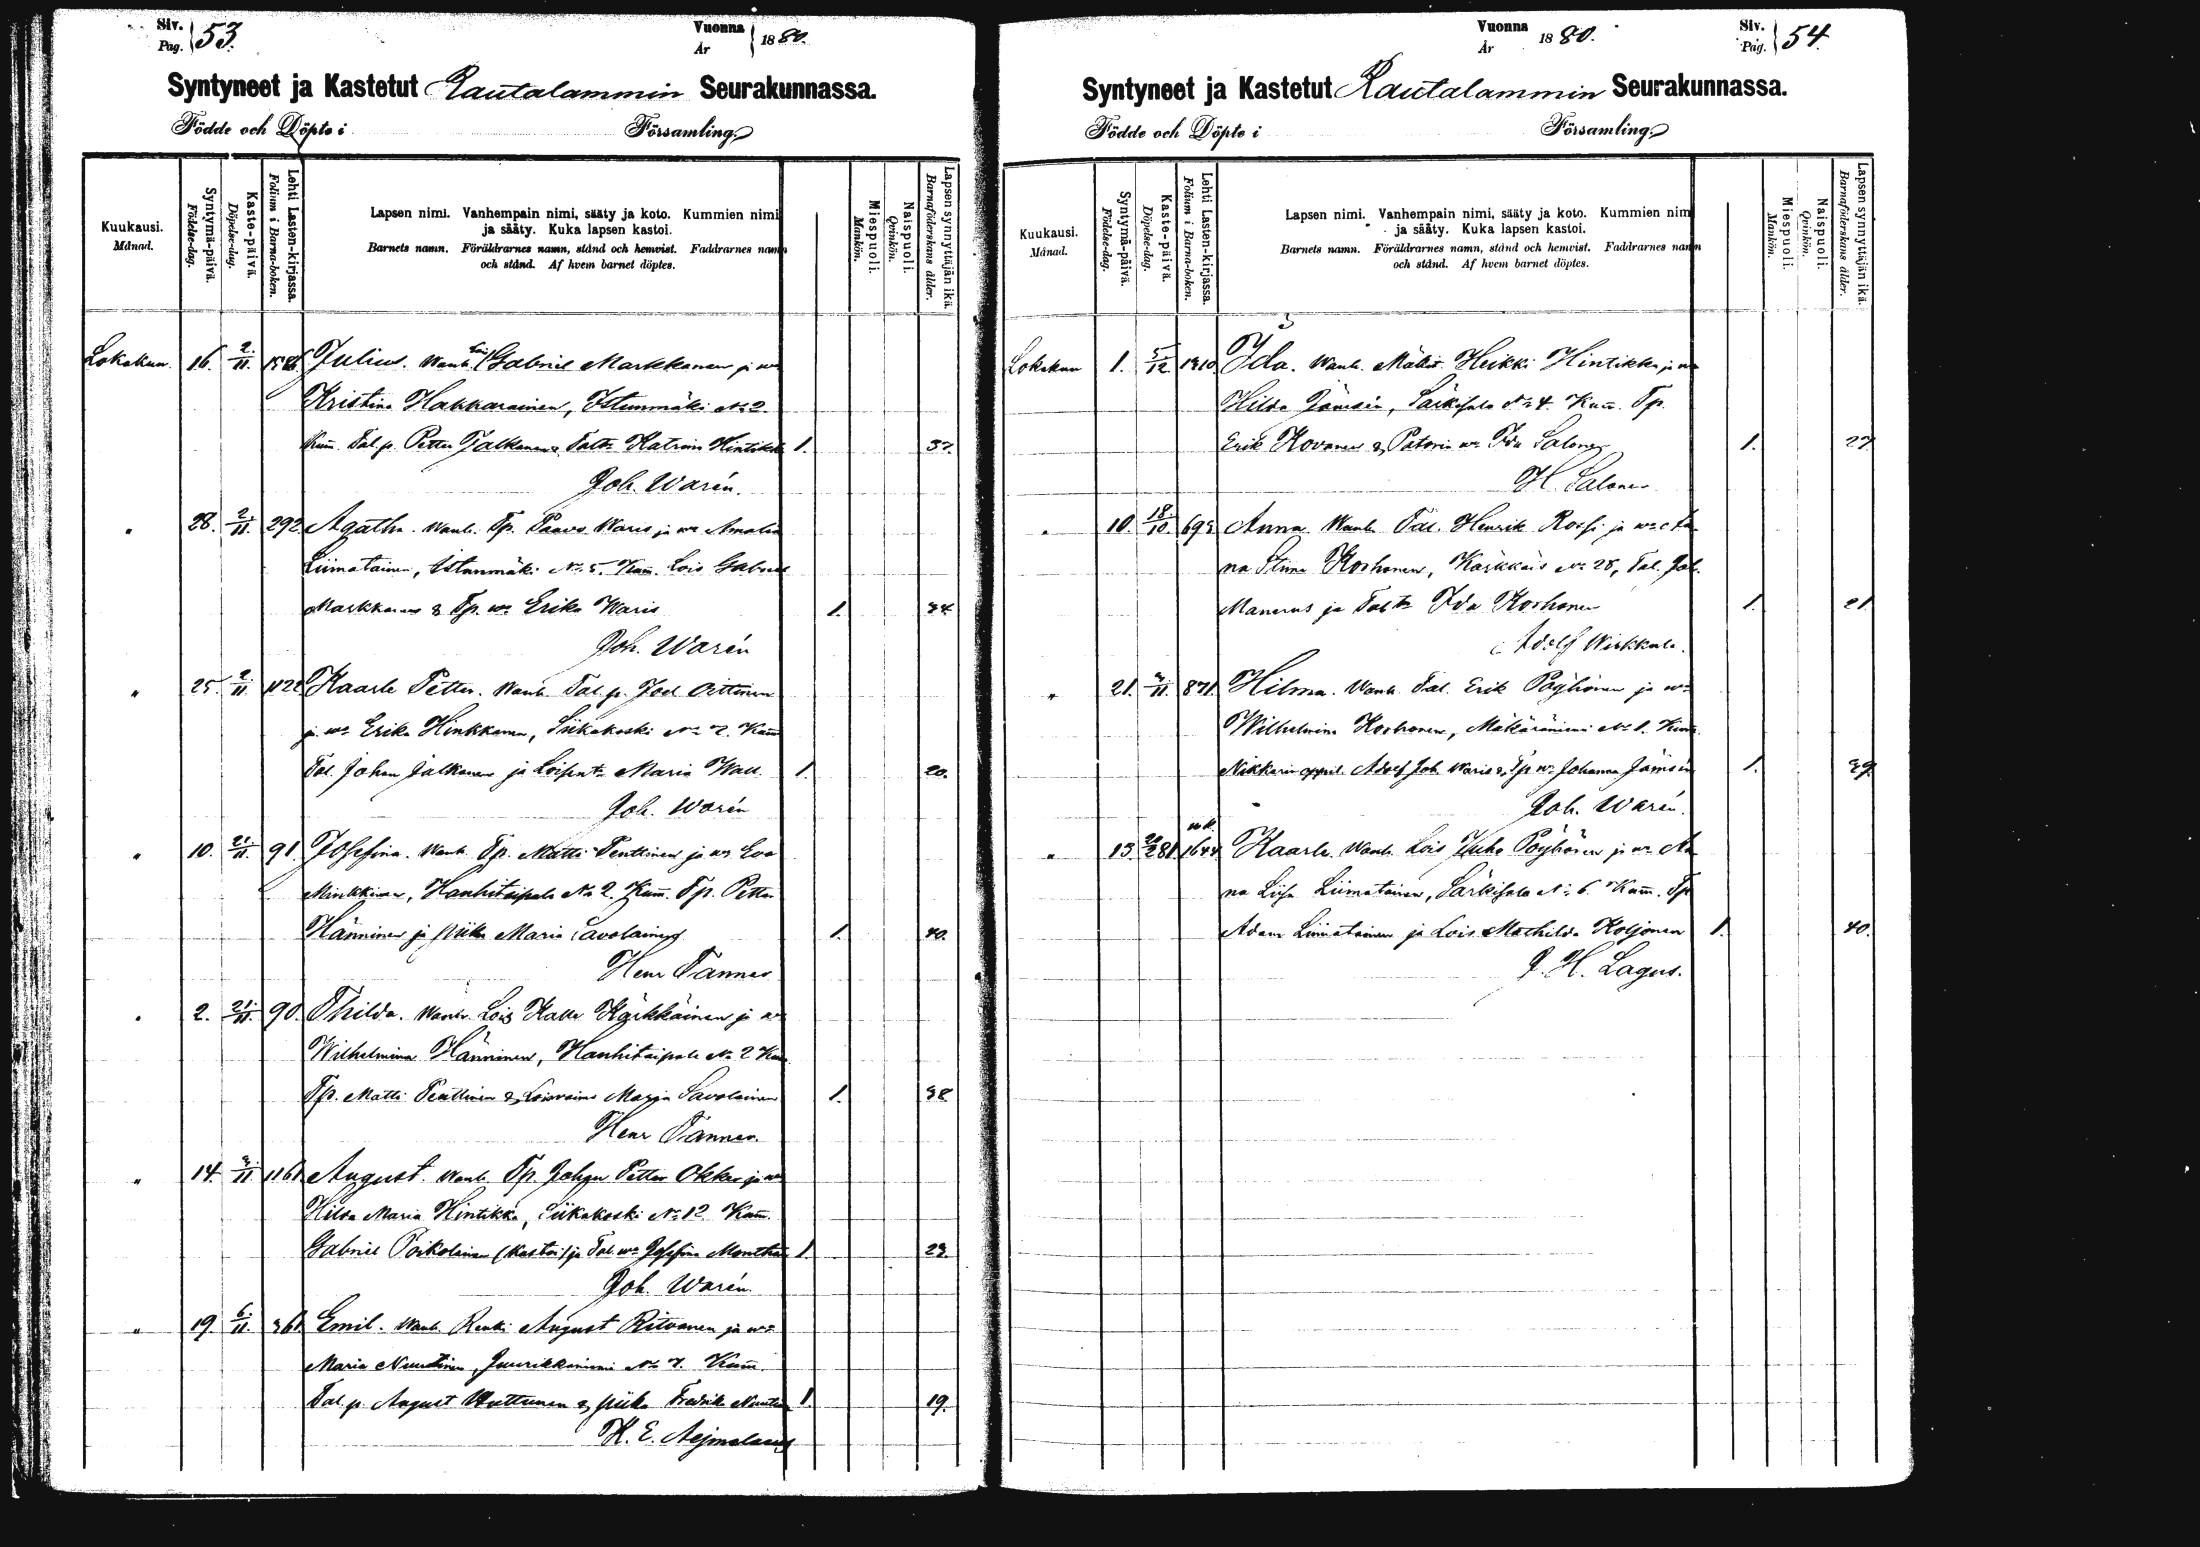 Siv. Pag. 53.
Vuonna År 1880.
Syntyneet ja Kastetut Rautalammin Seurakunnassa.
Födde och Döpte i Församling.
Kuukausi. Månad.
Syntymä-päivä. Födelse-dag.
Kaste-päivä. Döpelse-dag.
Lehti Lasten-kirjassa. Folium i Barna-boken.
Lapsen nimi. Vanhempain nimi, sääty ja koto. Kummien nimi
ja sääty. Kuka lapsen kastoi.
Barnets namn. Föräldrarnes namn, stånd och hemvist. Faddrarnes namn
och stånd. Af hvem barnet döptes.
Miespuoli. Mankön.
Naispuoli. Qvinkön.
Lapsen synnyttäjän ikä. Barnaföderskans ålder.
Lokakuu. 16. 2/11. Julius. Wanh. Lois Gabriel Markkanen ja wo
Kristina Hakkarainen, Istunmäki No 2.
Kum. Tal. p. Petter Jalkanen & Taltr Katrina Hintikka 1. 37.
Joh. Warén.
" 28. 2/11. 292. Agatha. Wanh. Tp. Paavo Waris ja wo Amalia
Liimatainen, Istunmäki No 5. Kum. Lois Gabriel
Markkanen & Tp. wo Erika Waris 1. 34.
Joh. Warén
" 25. 2/11. 1122 Kaarle Petter. Wanh. Tal. p. Joel Oittinen
ja wo Erika Hinkkanen, Siikakoski No 7. Kum
Tal. Johan Jalkanen ja Maria Wall 1. 20.
Joh. Warén
" 10. 21/11. 91. Josefina. Wanh. Tp. Matti Penttinen ja wo Eva
Minkkinen, Hanhitaipale No 2. Kum. Tp. Petter
Hänninen ja piika Maria Savolainen 1. 40.
Henr Tanner
" 2. 21/11. 90. Thilda. Wanh. Lois Kalle Kärkkäinen ja wo
Wilhelmina Hänninen, Hanhitaipale No 2 Kum
Tp. Matti Penttinen & Loisvaimo Marja Savolainen 1. 38
Henr Tanner.
" 14. 2/11. 1161 August. Wanh. Tp. Johan Petter Okker ja wo
Hilda Maria Hintikka, Siikakoski No 12. Kum.
Gabriel Poikolainen (kastoi) ja Tal. wo Josefina Monthan 1 23.
Joh. Warén.
" 19. 6/11. 361 Emil. Wanh. Renki August Ritvanen ja wo
Maria Nuutinen, Juurikkaniemi No 7. Kum.
Tal. p. August Wuttunen & piika Fredrika Nuutinen 1. 19.
K. E. Aejmelaeus
Vuonna År 1880.
Siv. Pag. 54.
Syntyneet ja Kastetut Rautalammin Seurakunnassa.
Födde och Döpte i Församling.
Kuukausi. Månad.
Syntymä-päivä. Födelse-dag.
Kaste-päivä. Döpelse-dag.
Lehti Lasten-kirjassa. Folium i Barna-boken.
Lapsen nimi. Vanhempain nimi, sääty ja koto. Kummien nim
ja sääty. Kuka lapsen kastoi.
Barnets namn. Föräldrarnes namn, stånd och hemvist. Faddrarnes namn
och stånd. Af hvem barnet döptes.
Miespuoli. Mankön.
Naispuoli. Qvinkön.
Lapsen synnyttäjän ikä. Barnaföderskans ålder.
Lokakuu 1. 5/12. 1310. Ida. Wanh. Mäkit. Heikki Hintikka ja wo
Hilda Jämsén, Särkisalo No 4. Kum. Tp.
Erik Kovanen & Patorin wo Ida Salonen 1. 27
H. Salonen
" 10. 18./10. 692 Anna Wanh. Tal. Henrik Rossi ja wo An
na Stina Korhonen, Kärkkäis No 28, Tal. Joh.
Manerus ja Taltr Ida Korhonen 1. 21
Adolf Wirkkula.
" 21. 2/11. 871 Hilma. Wanh. Tal. Erik Pöyhönen ja wo
Wilhelmina Korhonen, Mäkäräniemi No 1. Kum
Nikkarin oppil. Adolf Joh. Waris & Tp wo Johanna Jämsén 1. 39.
Joh. Warén.
" 13 20/2 81 1644 Kaarle. Wanh. Lois Juho Pöyhönen ja wo An
na Liisa Liimatainen, Särkisalo No 6. Kum. Tp
Adam Liimatainen ja Lois Mathilda Koljonen 1. 40.
J. H. Lagus.